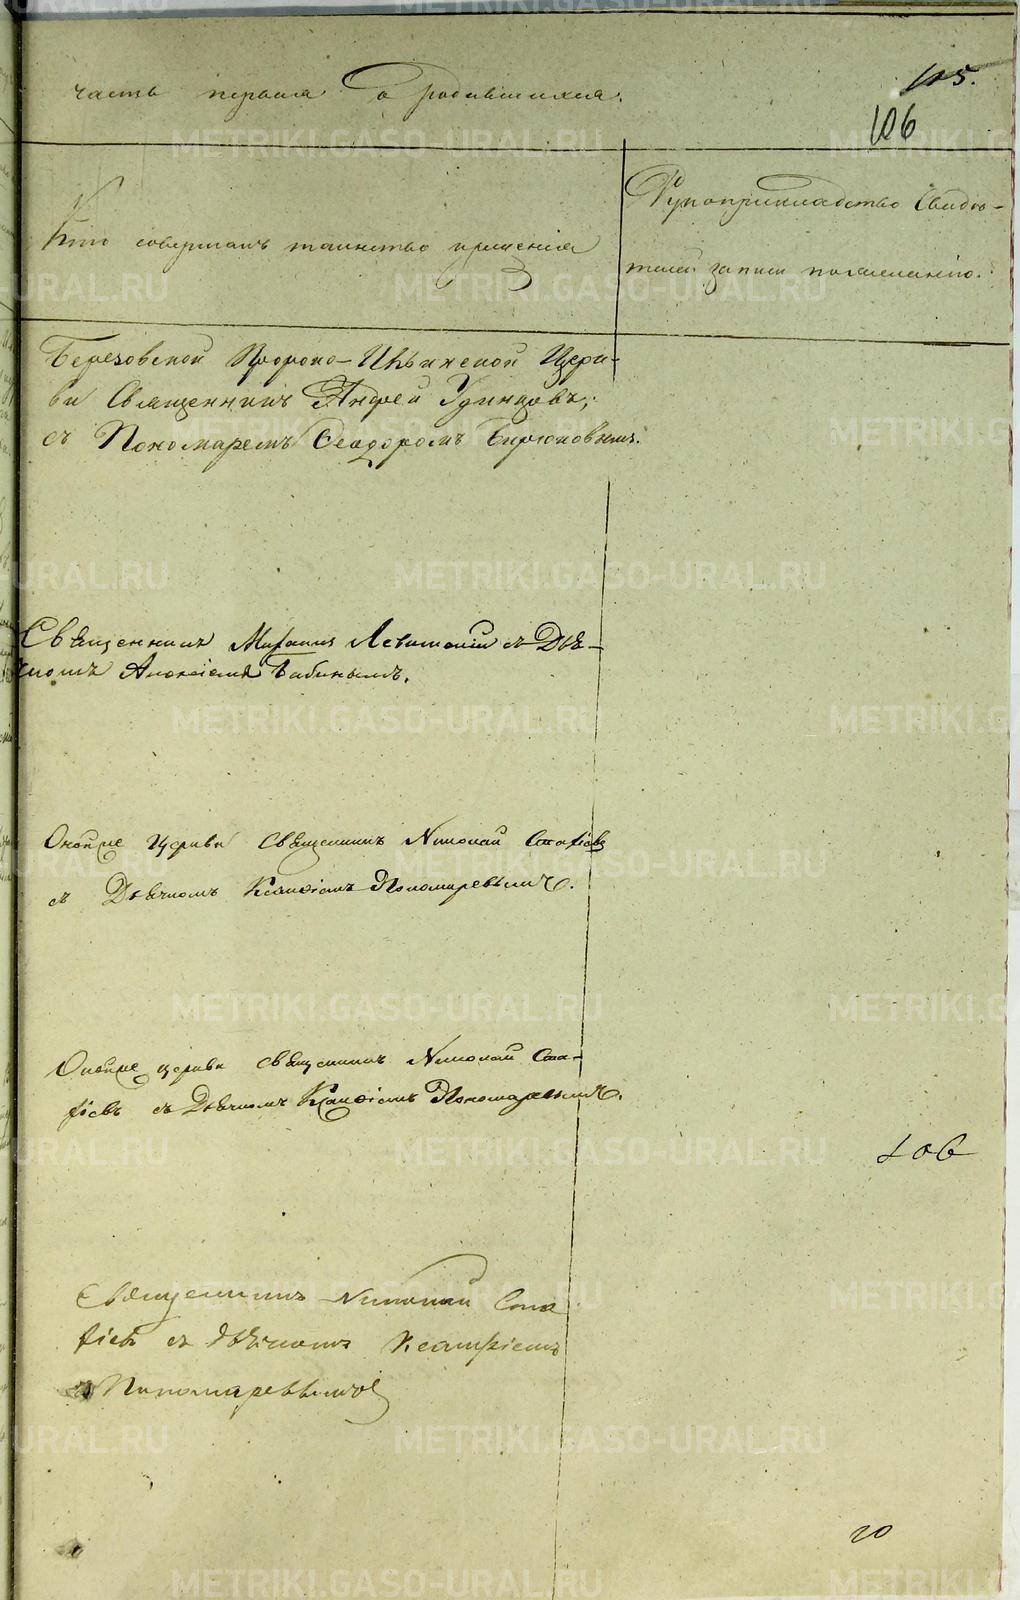 часть первая о родившихся.
105.
106
Кто совершалъ таинство крещенія
Рукоприкладство Свидѣ-
телей записи по желанію.
Березовской Пророко-Ильинской Церк-
ви Священникъ Андрей Удинцовъ,
съ Пономаремъ Ѳеодоромъ Бирюковымъ.
Священникъ Михаилъ Левитскій съ Дья-
чкомъ Алексіемъ Бабинымъ.
Оной же Церкви Священникъ Николай
съ Дьячкомъ Ксанѳіемъ Пономаревымъ.
Оной же церкви священникъ Николай
съ Дьячкомъ Ксанѳіемъ Пономаревымъ.
106
Священникъ Николай
съ Дьячкомъ Ксанфіемъ
Пономаревымъ
10
METRIKI.GASO-URAL.RU